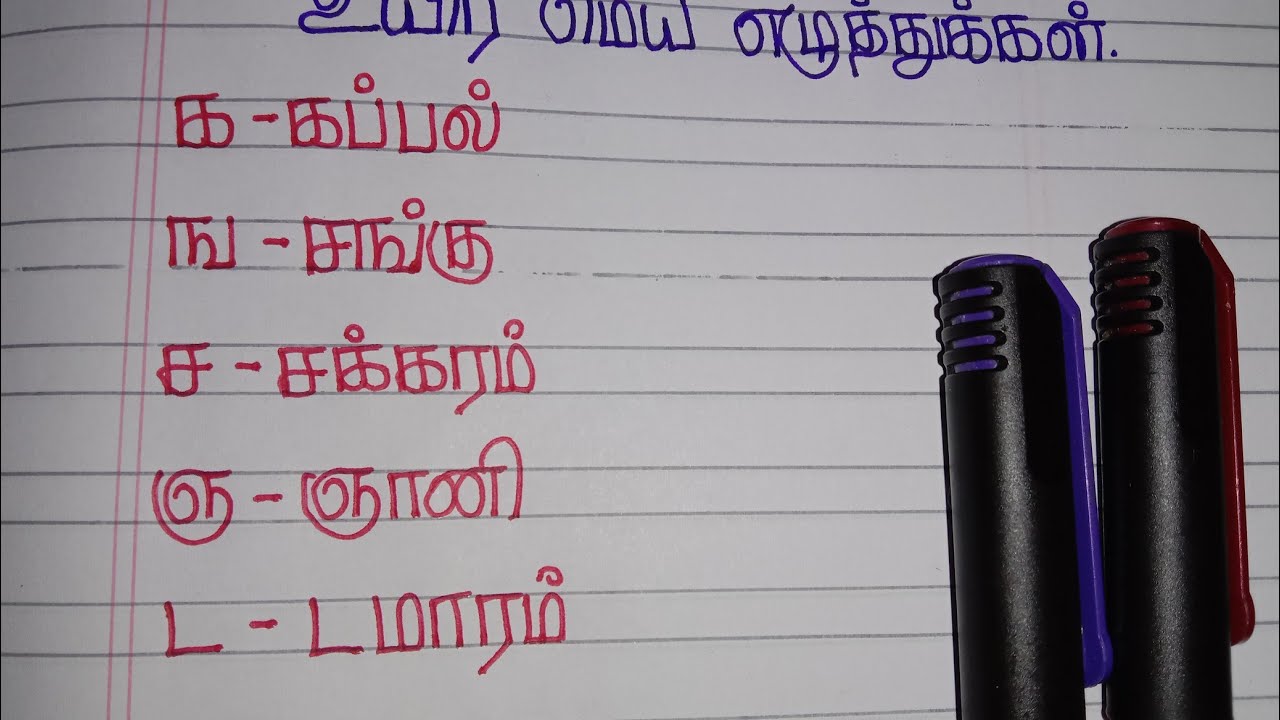 உயிர் மெய் எழுத்துக்கள்.
க - கப்பல்
ங - சங்கு
ச - சக்கரம்
ஞ - ஞானி
ட - டமாரம்